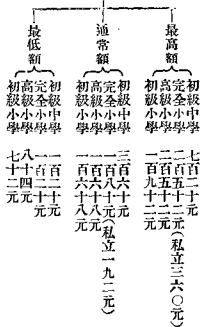 最高額
初級中學 七百二十元
完全小學 二百五十二元(私立三六〇元)
高級小學 二百五十二元
初級小學 一百九十二元
通常額
初級中學 三百六十元
完全小學 一百八十元(私立一九二元)
高級小學 一百六十八元
初級小學 一百六十八元
最低額
初級中學 一百二十元
完全小學 一百二十元
高級小學 八十四元
初級小學 七十二元